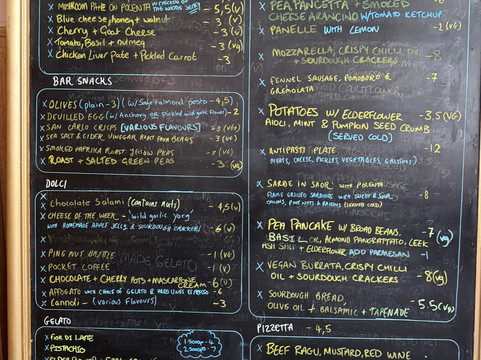 MUSHROOM PATE ON POLENTA - 5,5(V)
x Blue cheese, honey + walnut - 3 (V)
x Cherry + Goat Cheese - 3 (V)
x Tomato, Basil + nutmeg - 3 (vg)
x Chicken Liver Pate + Pickled Carrot - 3
BAR SNACKS
x OLIVES (plain - 3) (w/ Sage + almond pesto - 4,5)
x DEVILLED EGG (w/ Anchovy OR Pickled wild garlic flower) - 2
x SAN CARLO CRISPS [VARIOUS FLAVOURS] - 3 (vg)
x SEA SALT & CIDER VINEGAR ROAST FAVA BEANS - 3 (vg)
x SMOKED PAPRIKA ROAST YELLOW PEAS - 3 (vg)
x ROAST + SALTED GREEN PEAS - 3 (vg)
DOLCI
x Chocolate Salami (contains nuts) - 4,5(v)
x CHEESE OF THE WEEK - 'wild garlic yarg'
WITH HOMEMADE APPLE JELLY & SOURDOUGH CRACKERS - 6 (v)
MADE GELATO
x PINE NUT BRITTLE - 1 (vg)
x POCKET COFFEE - 1 (v)
x CHOCOLATE + CHERRY POTS + MASCARPONE CREAM - 6 (v)
x AFFOGATO WITH CHOICE OF GELATO & ESPRESSO - 6
x Cannoli - (various Flavours) - 3
GELATO
x FIOR DI LATTE
x PISTACHIO
1 scoop - 4
2 scoops - 7
x PEA, PANCETTA + SMOKED
CHEESE ARANCINO W/ TOMATO KETCHUP
x PANELLE WITH LEMON - 2 (VG)
MOZZARELLA, CRISPY CHILLI OIL
+ SOURDOUGH CRACKERS - 8
x FENNEL SAUSAGE, POMODORO & - 7
GREMOLATA
x POTATOES W/ ELDERFLOWER - 3,5 (VG)
AIOLI, MINT & PUMPKIN SEED CRUMB
(SERVED COLD)
x ANTIPASTI PLATE - 12
MEATS, CHEESE, PICKLED VEGETABLES, GRISSINI
x SARDE IN SAOR WITH POLENTA - 8
x PEA PANCAKE W/ BROAD BEANS, - 7 (vg)
BASIL OIL, ALMOND PANGRATTATO, LEEK
ASH SALT + ELDERFLOWER ADD PARMESAN - 1
x VEGAN BURRATA, CRISPY CHILLI
OIL + SOURDOUGH CRACKERS - 8 (vg)
x SOURDOUGH BREAD,
OLIVE OIL + BALSAMIC + TAPENADE - 5.5 (vg)
PIZZETTA - 4,5
x BEEF RAGU, MUSTARD, RED WINE